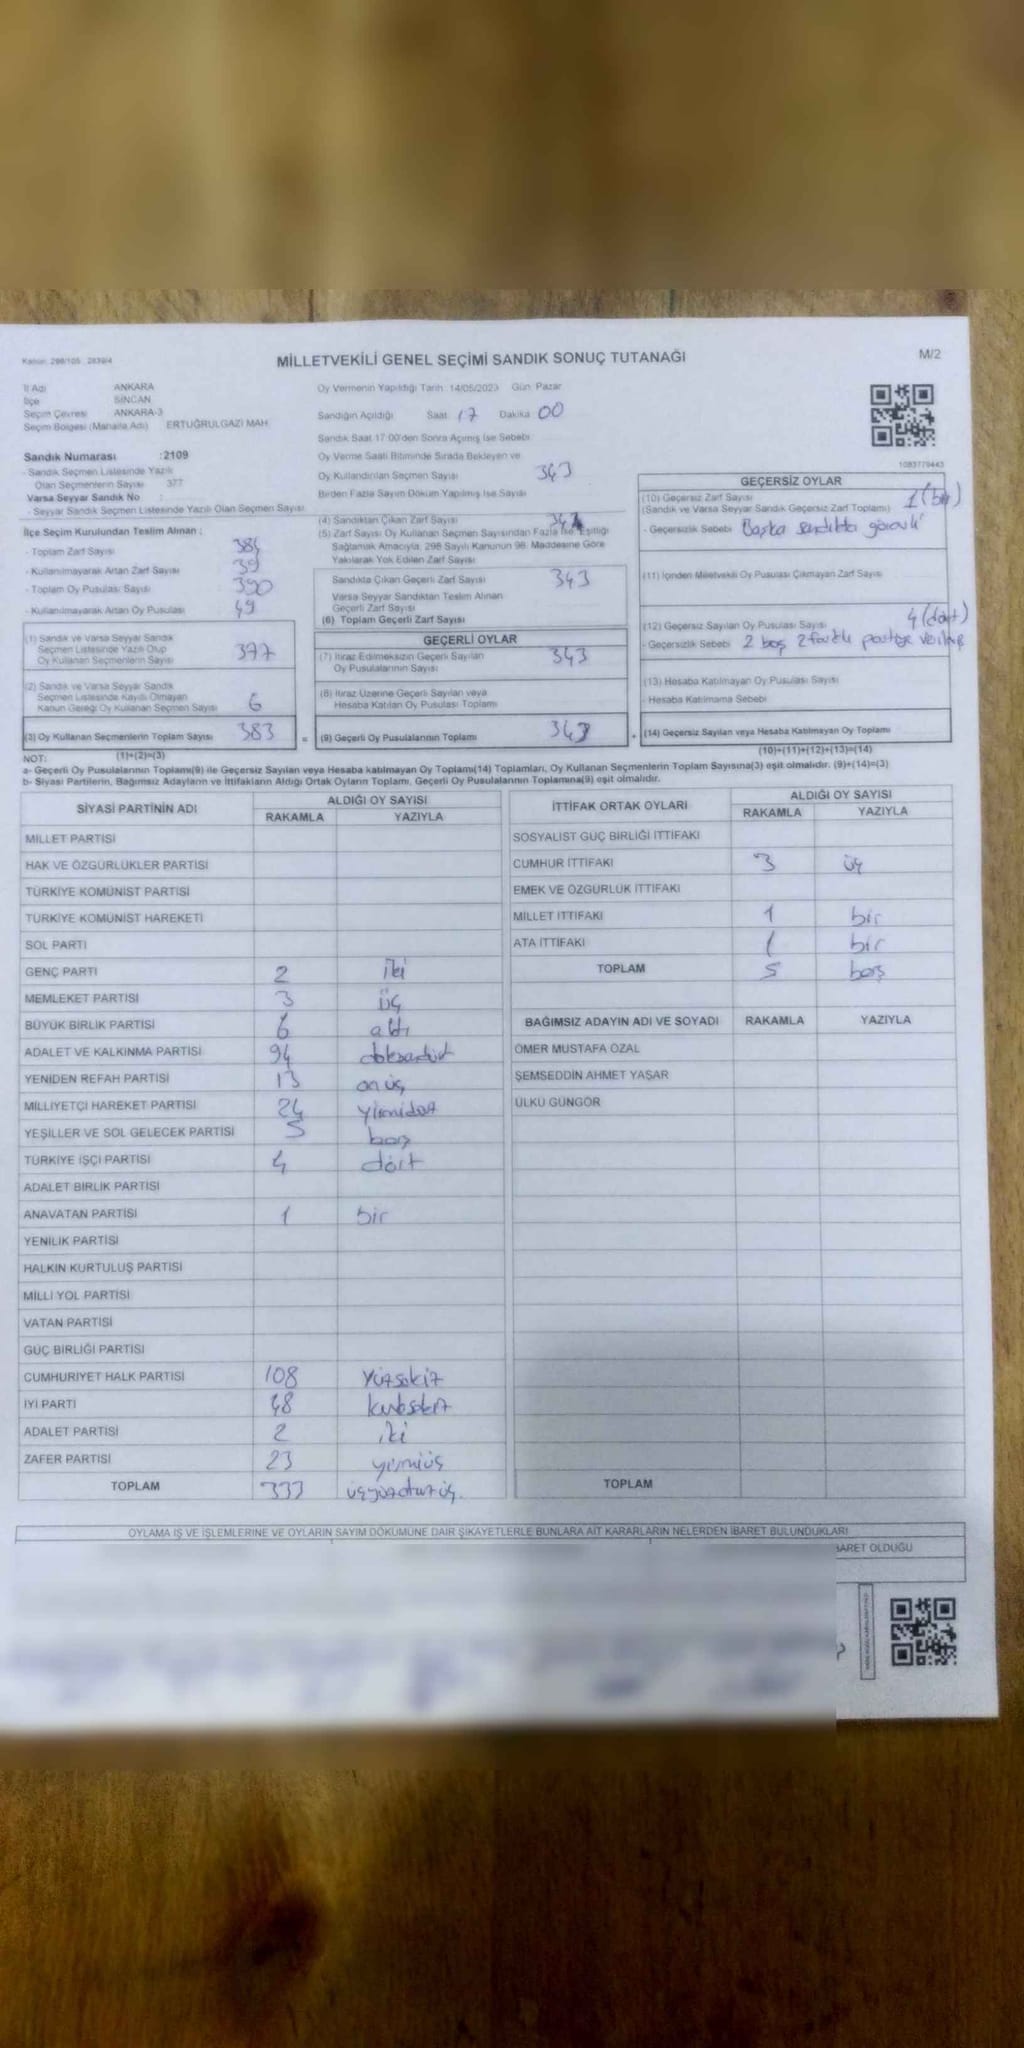 Kanun: 298/105 2839/4
MİLLETVEKİLİ GENEL SEÇİMİ SANDIK SONUÇ TUTANAĞI
M/2
İl Adı ANKARA
İlçe SİNCAN
Seçim Çevresi ANKARA-3
Seçim Bölgesi (Mahalle Adı) ERTUĞRULGAZİ MAH.
Sandık Numarası :2109
- Sandık Seçmen Listesinde Yazılı
Olan Seçmenlerin Sayısı 377
Varsa Seyyar Sandık No :
- Seyyar Sandık Seçmen Listesinde Yazılı Olan Seçmen Sayısı
Oy Vermenin Yapıldığı Tarih: 14/05/2023 Gün: Pazar
Sandığın Açıldığı Saat 17 Dakika 00
Sandık Saat 17:00'den Sonra Açımış İse Sebebi
Oy Verme Saati Bitiminde Sırada Bekleyen ve
Oy Kullandırılan Seçmen Sayısı 343
Birden Fazla Sayım Döküm Yapılmış İse Sayısı
1083779443
İlçe Seçim Kurulundan Teslim Alınan :
- Toplam Zarf Sayısı 384
- Kullanılmayarak Artan Zarf Sayısı 39
- Toplam Oy Pusulası Sayısı 390
- Kullanılmayarak Artan Oy Pusulası 49
(1) Sandık ve Varsa Seyyar Sandık
Seçmen Listesinde Yazılı Olup
Oy Kullanan Seçmenlerin Sayısı 377
(2) Sandık ve Varsa Seyyar Sandık
Seçmen Listesinde Kayıtlı Olmayan
Kanun Gereği Oy Kullanan Seçmen Sayısı 6
(3) Oy Kullanan Seçmenlerin Toplam Sayısı 383
(1)+(2)=(3)
(4) Sandıktan Çıkan Zarf Sayısı
(5) Zarf Sayısı Oy Kullanan Seçmen Sayısından Fazla İse, Eşitliği
Sağlamak Amacıyla, 298 Sayılı Kanunun 98. Maddesine Göre
Yakılarak Yok Edilen Zarf Sayısı
Sandıkta Çıkan Geçerli Zarf Sayısı 343
Varsa Seyyar Sandıktan Teslim Alınan
Geçerli Zarf Sayısı
(6) Toplam Geçerli Zarf Sayısı
GEÇERLİ OYLAR
(7) İtiraz Edilmeksizin Geçerli Sayılan
Oy Pusulalarının Sayısı 343
(8) İtiraz Üzerine Geçerli Sayılan veya
Hesaba Katılan Oy Pusulası Toplamı
= (9) Geçerli Oy Pusulalarının Toplamı 343
GEÇERSİZ OYLAR
(10) Geçersiz Zarf Sayısı 1 (bir)
(Sandık ve Varsa Seyyar Sandık Geçersiz Zarf Toplamı)
- Geçersizlik Sebebi Başka sandıkta görevli
(11) İçinden Milletvekili Oy Pusulası Çıkmayan Zarf Sayısı
(12) Geçersiz Sayılan Oy Pusulası Sayısı 4 (dört)
- Geçersizlik Sebebi 2 boş 2 farklı partiye
(13) Hesaba Katılmayan Oy Pusulası Sayısı
- Hesaba Katılmama Sebebi
+ (14) Geçersiz Sayılan veya Hesaba Katılmayan Oy Toplamı
(10)+(11)+(12)+(13)=(14)
NOT:
a- Geçerli Oy Pusulalarının Toplamı(9) ile Geçersiz Sayılan veya Hesaba katılmayan Oy Toplamı(14) Toplamları, Oy Kullanan Seçmenlerin Toplam Sayısına(3) eşit olmalıdır. (9)+(14)=(3)
b- Siyasi Partilerin, Bağımsız Adayların ve İttifakların Aldığı Ortak Oyların Toplam, Geçerli Oy Pusulalarının Toplamına(9) eşit olmalıdır.
SİYASİ PARTİNİN ADI ALDIĞI OY SAYISI
RAKAMLA YAZIYLA
MİLLET PARTİSİ
HAK VE ÖZGÜRLÜKLER PARTİSİ
TÜRKİYE KOMÜNİST PARTİSİ
TÜRKİYE KOMÜNİST HAREKETİ
SOL PARTİ
GENÇ PARTİ 2 iki
MEMLEKET PARTİSİ 3 üç
BÜYÜK BİRLİK PARTİSİ 6 altı
ADALET VE KALKINMA PARTİSİ 94 doksandört
YENİDEN REFAH PARTİSİ 13 onüç
MİLLİYETÇİ HAREKET PARTİSİ 24 yirmidört
YEŞİLLER VE SOL GELECEK PARTİSİ 5 beş
TÜRKİYE İŞÇİ PARTİSİ 4 dört
ADALET BİRLİK PARTİSİ
ANAVATAN PARTİSİ 1 bir
YENİLİK PARTİSİ
HALKIN KURTULUŞ PARTİSİ
MİLLİ YOL PARTİSİ
VATAN PARTİSİ
GÜÇ BİRLİĞİ PARTİSİ
CUMHURİYET HALK PARTİSİ 108 yüzsekiz
İYİ PARTİ 48 kırksekiz
ADALET PARTİSİ 2 iki
ZAFER PARTİSİ 23 yirmiüç
TOPLAM 333 üçyüzotuzüç.
İTTİFAK ORTAK OYLARI ALDIĞI OY SAYISI
RAKAMLA YAZIYLA
SOSYALİST GÜÇ BİRLİĞİ İTTİFAKI
CUMHUR İTTİFAKI 3 üç
EMEK VE ÖZGÜRLÜK İTTİFAKI
MİLLET İTTİFAKI 1 bir
ATA İTTİFAKI 1 bir
TOPLAM 5 beş
BAĞIMSIZ ADAYIN ADI VE SOYADI RAKAMLA YAZIYLA
ÖMER MUSTAFA ÖZAL
ŞEMSEDDİN AHMET YAŞAR
ÜLKÜ GÜNGÖR
TOPLAM
OYLAMA İŞ VE İŞLEMLERİNE VE OYLARIN SAYIM DÖKÜMÜNE DAİR ŞİKAYETLERLE BUNLARA AİT KARARLARIN NELERDEN İBARET BULUNDUKLARI
BARET OLDUĞU